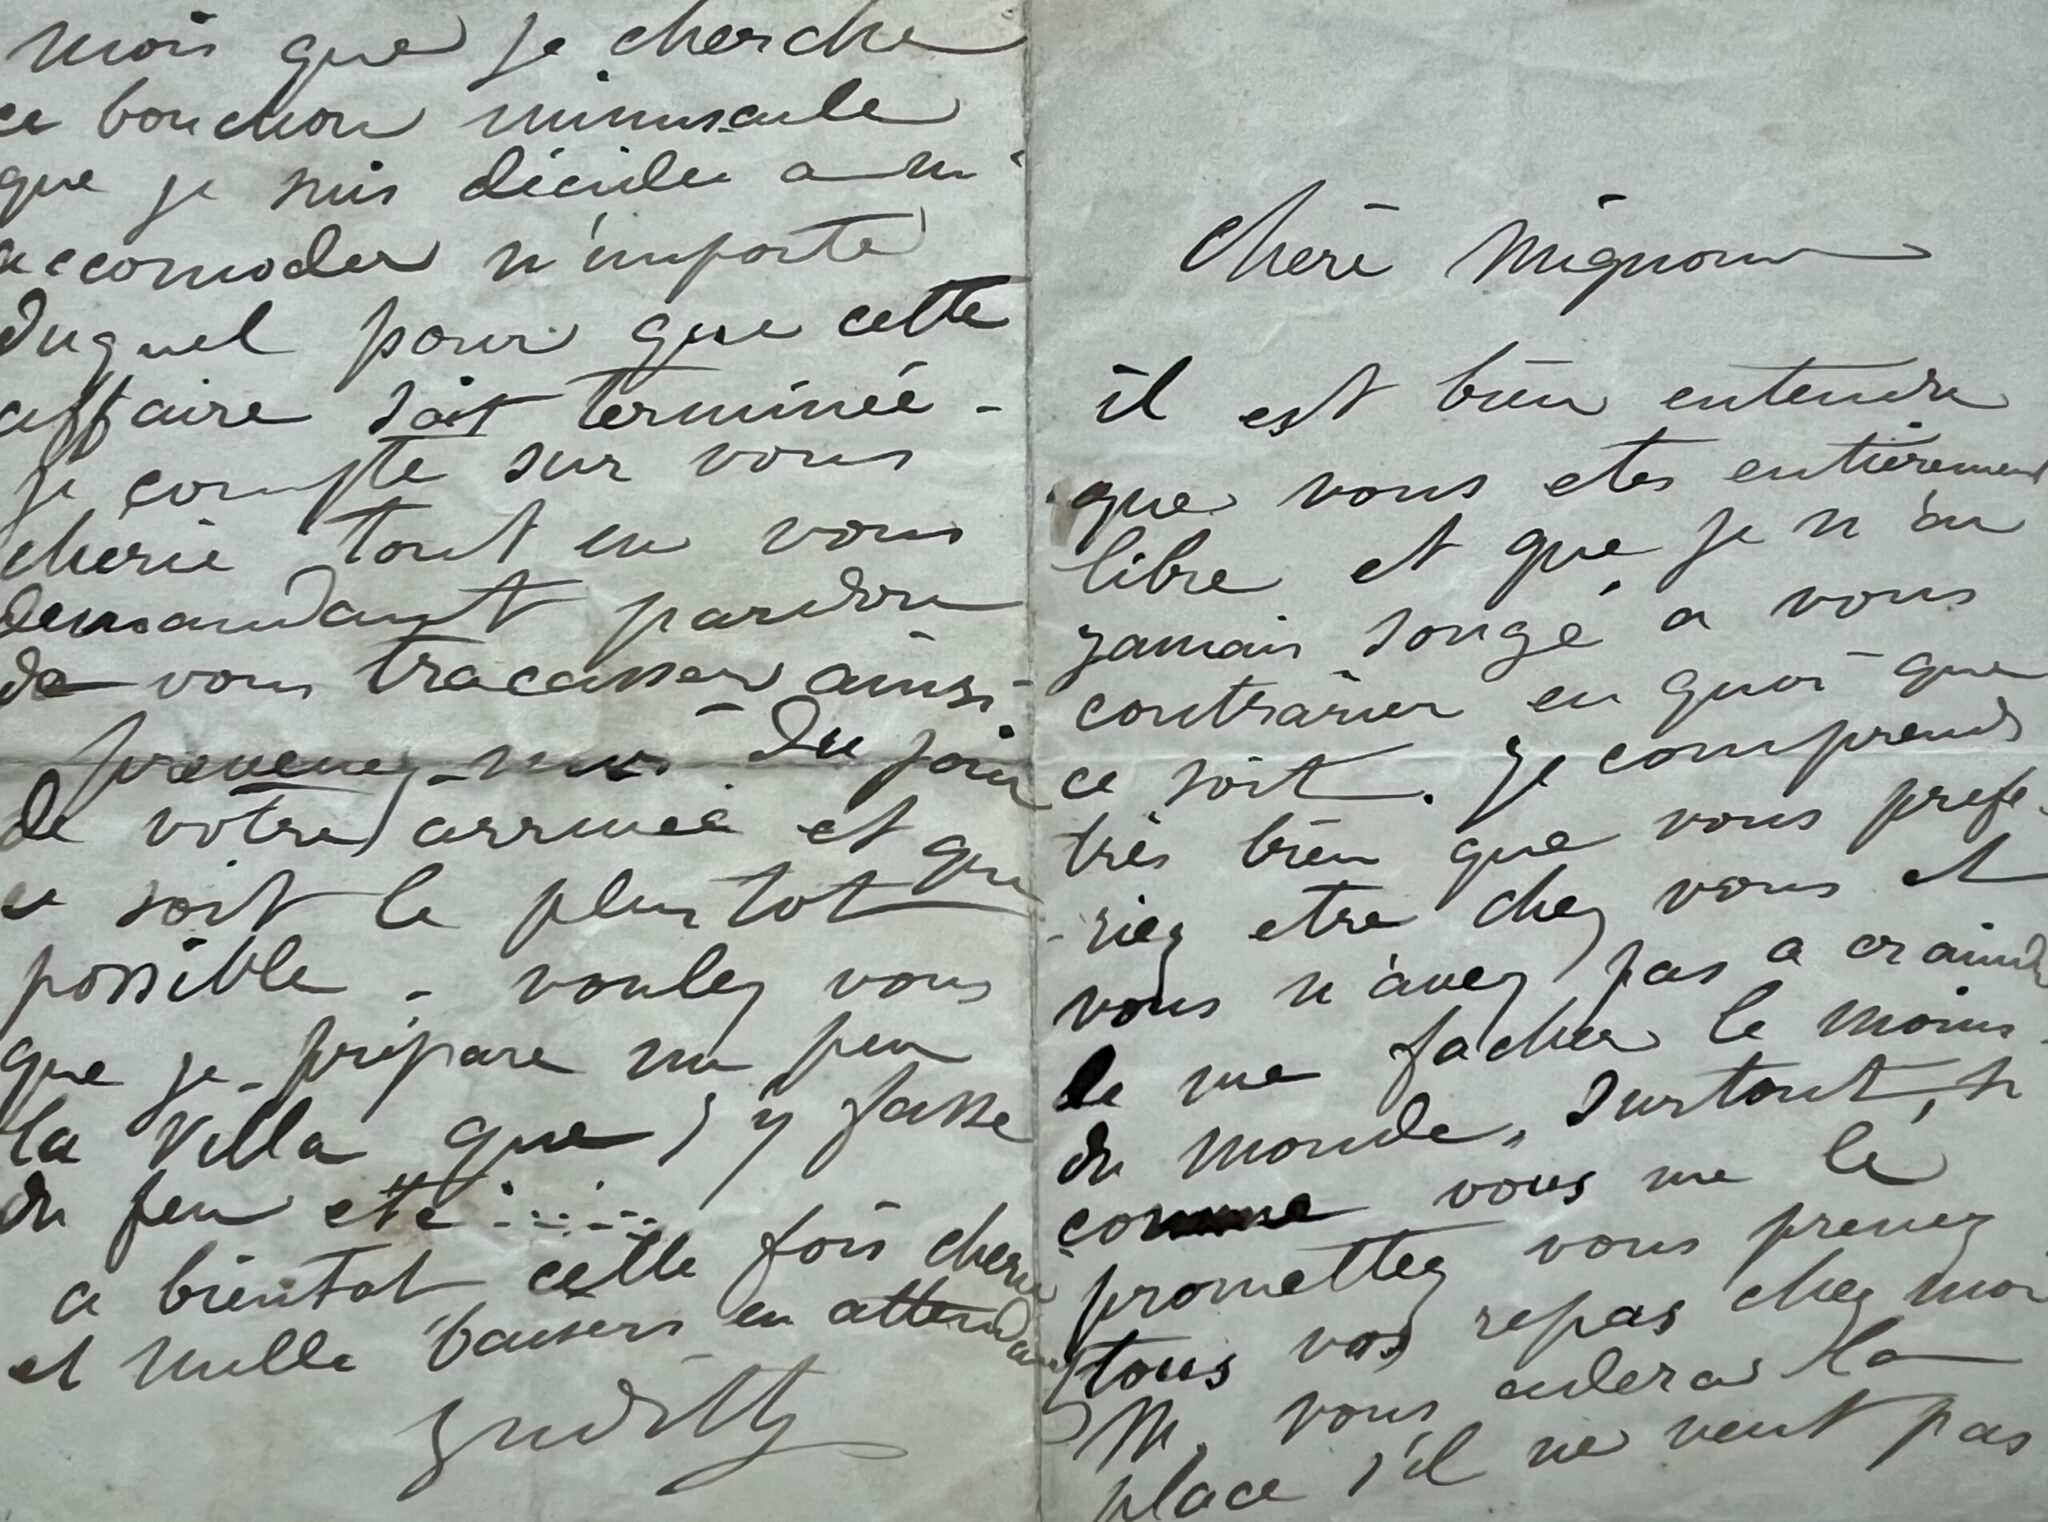 cherè mignonne
il est bien entendu
que vous etes entièrement
libre et que je n'ai
jamais songé a vous
contrarier en quoi que
ce soit. je comprends
très bien que vous prefe-
-riez etre chez vous et
vous n'avez pas a craindre
de me facher le moins
du monde, surtout, si
comme vous me lé
promettez vous prenez
tous vos repas chez moi
M. vous cédera sa
place s'il ne veut pas
mois que je cherche
ce bouchon minuscule
que je suis décidée a m'
accomoder n'importe
duquel pour que cette
affaire soit terminée -
je compte sur vous
cherie tout en vous
demandant pardon
de vous tracasser ainsi.
prevenez-moi du jour
de votre arrivée et que
ce soit le plus tot
possible - voulez vous
que je prépare un peu
la villa que j'y fasse
du feu etc.......
a bientot cette fois cherie
et mille baisers en attendant
Judith